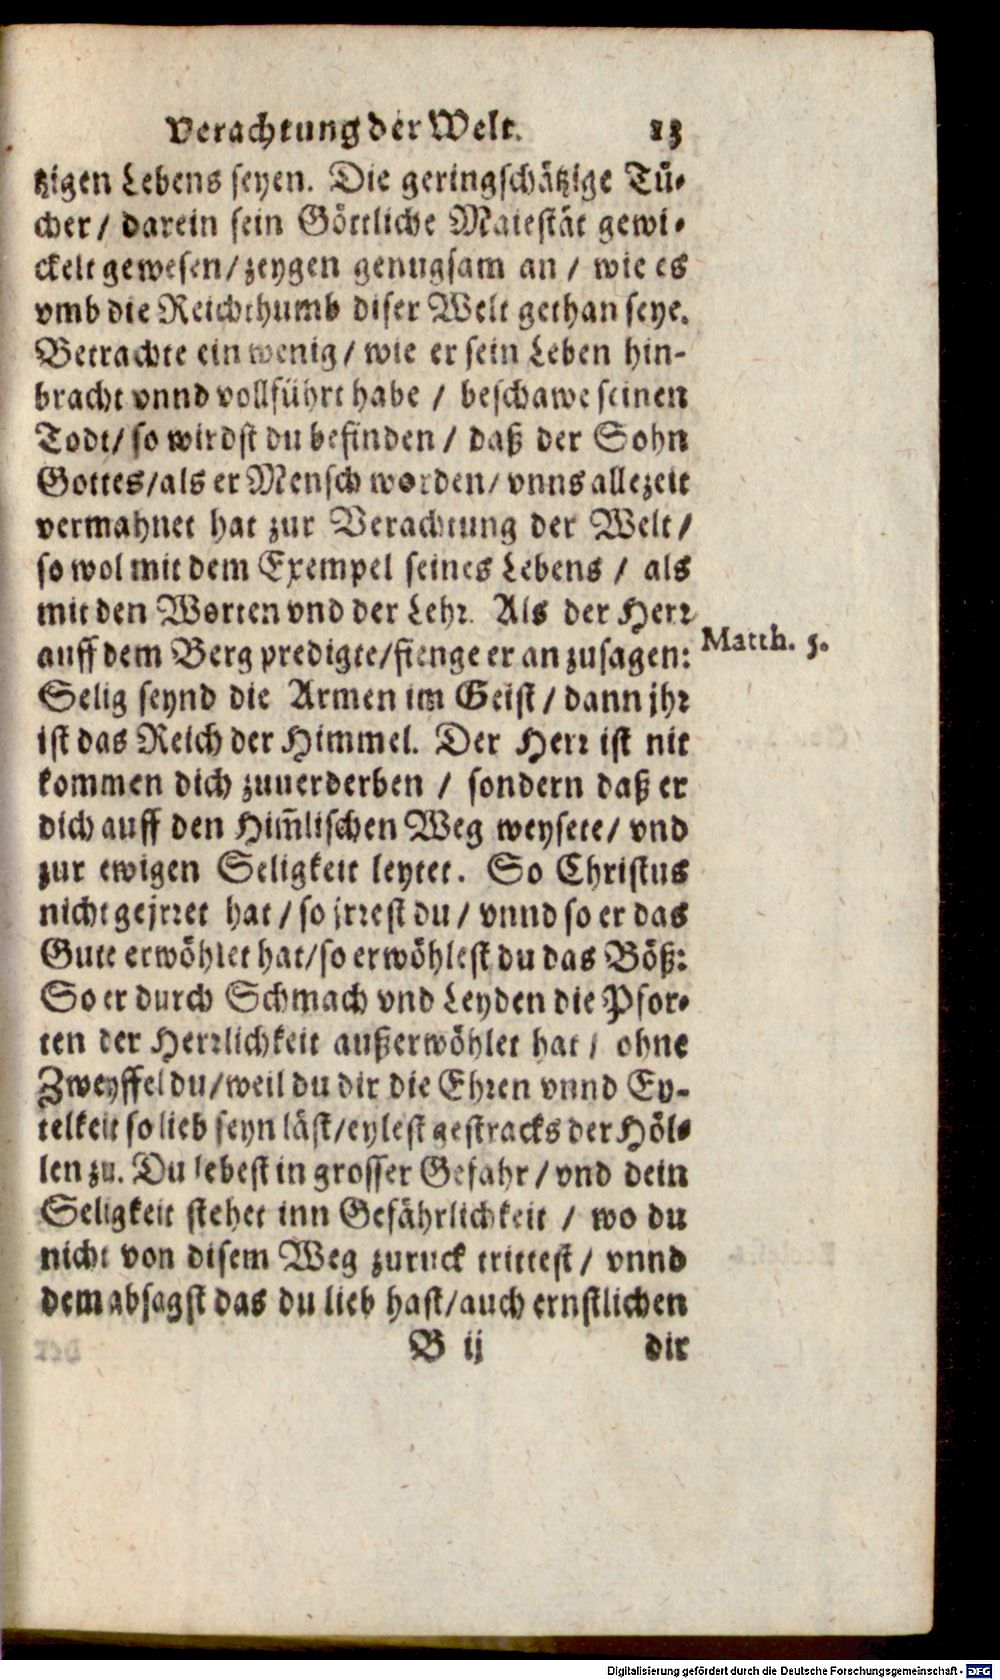 Verachtung der Welt. 13
tzigen Lebens seyen. Die geringschätzige Tü-
cher / darein sein Göttliche Maiestät gewi-
ckelt gewesen / zeygen genugsam an / wie es
vmb die Reichthumb diser Welt gethan seye.
Betrachte ein wenig / wie er sein Leben hin-
bracht vnnd vollführt habe / beschawe seinen
Todt / so wirdst du befinden / daß der Sohn
Gottes / als er Mensch worden / vnns allezeit
vermahnet hat zur Verachtung der Welt /
so wol mit dem Exempel seines Lebens / als
mit den Worten vnd der Lehr. Als der Herr
auff dem Berg predigte / fienge er an zusagen: Matth. 5.
Selig seynd die Armen im Geist / dann jhr
ist das Reich der Himmel. Der Herr ist nit
kommen dich zuuerderben / sondern daß er
dich auff den Him̃lischen Weg weysete / vnd
zur ewigen Seligkeit leytet. So Christus
nicht gejrret hat / so jrrest du / vnnd so er das
Gute erwöhlet hat / so erwöhlest du das Böß:
So er durch Schmach vnd Leyden die Pfor-
ten der Herrlichkeit außerwöhlet hat / ohne
Zweyffel du / weil du dir die Ehren vnnd Ey-
telkeit so lieb seyn läst / eylest gestracks der Höl-
len zu. Du lebest in grosser Gefahr / vnd dein
Seligkeit stehet inn Gefährlichkeit / wo du
nicht von disem Weg zuruck trittest / vnnd
dem absagst das du lieb hast / auch ernstlichen
B ij dir
Digitalisierung gefördert durch die Deutsche Forschungsgemeinschaft - DFG